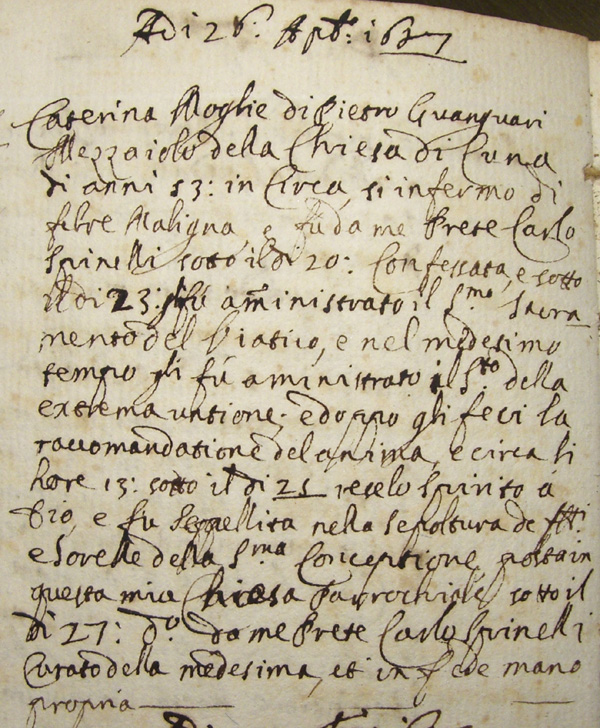 Adi 26: Apte: 1657
Caterina Moglie di Pietro Guanguari
Mezzaiolo della Chiesa di Cuna
di anni 53: in Circa, si infermo di
febre Maligna, e fù da me Prete Carlo
Spinelli sotto il di 20: Confessata, e sotto
il di 23: gli fù aministrato il S.mo Sacra
mento del Viatico, e nel medesimo
tempo gli fù aministrato il S.to della
extrema untione; e doppo gli feci la
raccomandatione del anima, e circa li
hore 13: sotto il di 25 rese lo spirito à
Dio, e fù seppellita nella sepoltura de ftti
e Sorelle della S.ma Conceptione, posta in
questa mia Chiesa Parrochiale, sotto il
di 27: d.o da me Prete Carlo Spinelli
Curato della medesima, et in fede mano
propria
Adi